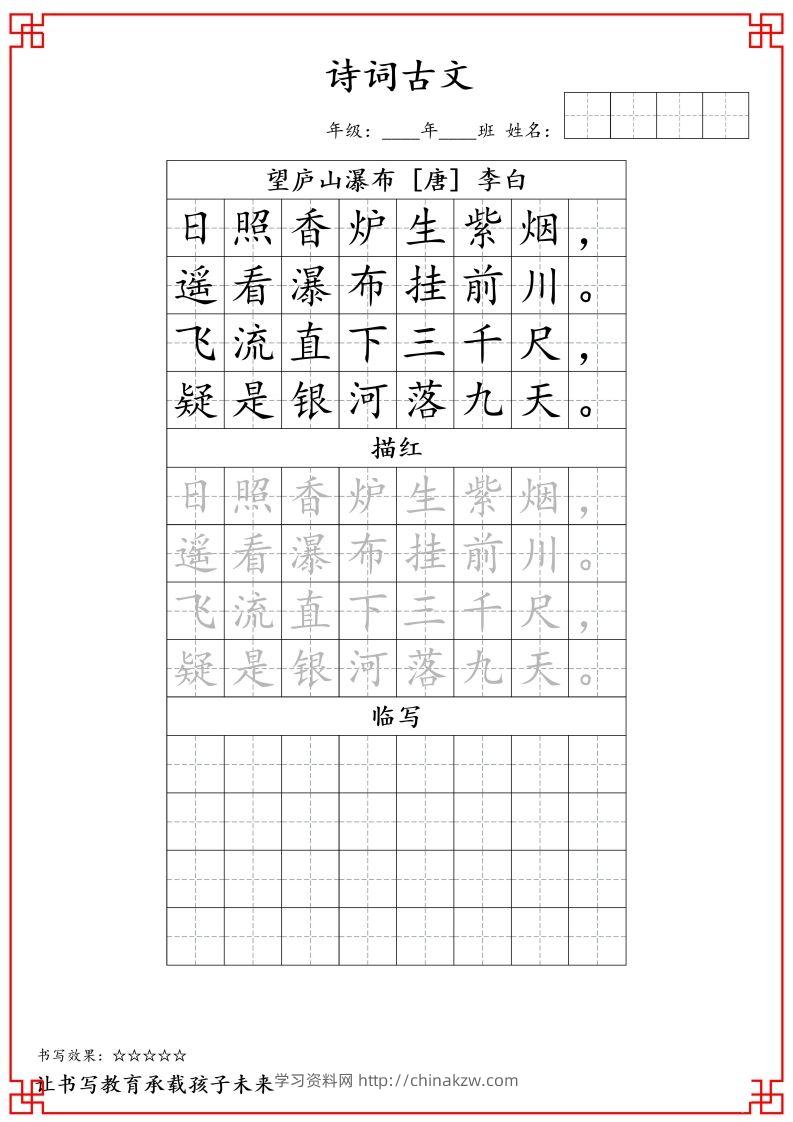 诗词古文
年级：____年____班 姓名：
望庐山瀑布［唐］李白
日照香炉生紫烟，
遥看瀑布挂前川。
飞流直下三千尺，
疑是银河落九天。
描红
日照香炉生紫烟，
遥看瀑布挂前川。
飞流直下三千尺，
疑是银河落九天。
临写
书写效果：☆☆☆☆☆
让书写教育承载孩子未来
学习资料网 http://chinakzw.com